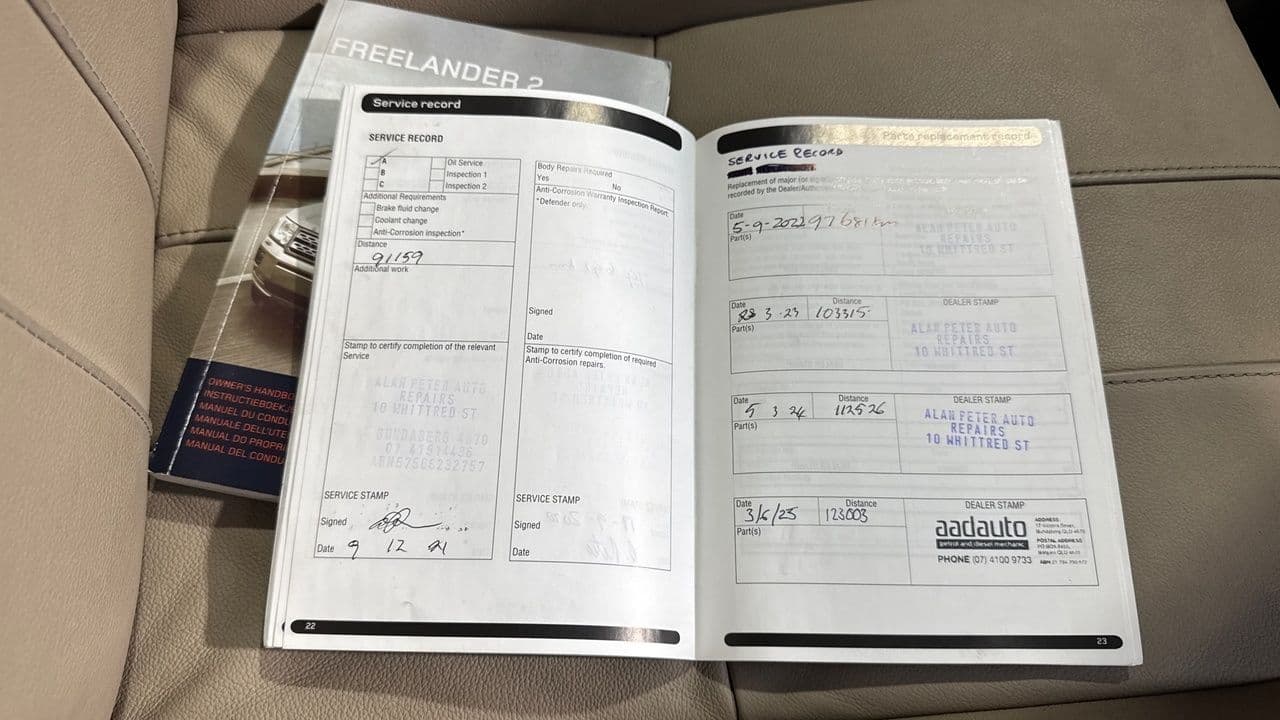 FREELANDER 2
OWNER'S HANDBO
INSTRUCTIEBOEKJ
MANUEL DU CONDU
MANUALE DELL'UTE
MANUAL DO PROPRI
MANUAL DEL CONDU
Service record
SERVICE RECORD
A
B
C
Oil Service
Inspection 1
Inspection 2
Additional Requirements
Brake fluid change
Coolant change
Anti-Corrosion inspection*
Distance
91159
Additional work
Stamp to certify completion of the relevant
Service
ALAN PETER AUTO
REPAIRS
10 WHITTRED ST
BUNDABERG 4670
07 41514436
SERVICE STAMP
Signed
Date 9 12 21
Body Repairs Required
Yes No
Anti-Corrosion Warranty Inspection Report
*Defender only.
Signed
Date
Stamp to certify completion of required
Anti-Corrosion repairs.
SERVICE STAMP
Signed
Date
22
Parts replacement record
SERVICE RECORD
Replacement of major (or
recorded by the Dealer/Autho
Date
5-9-2022 97681km
Part(s)
ALAN PETER AUTO
REPAIRS
10 WHITTRED ST
Date Distance DEALER STAMP
3.23 103315
Part(s)
ALAN PETER AUTO
REPAIRS
10 WHITTRED ST
Date Distance DEALER STAMP
5 3 24 112526
Part(s)
ALAN PETER AUTO
REPAIRS
10 WHITTRED ST
Date Distance DEALER STAMP
3/6/25 123003
Part(s)
aadauto
petrol and diesel mechanic
PHONE (07) 4100 9733
ADDRESS:
POSTAL ADDRESS
23